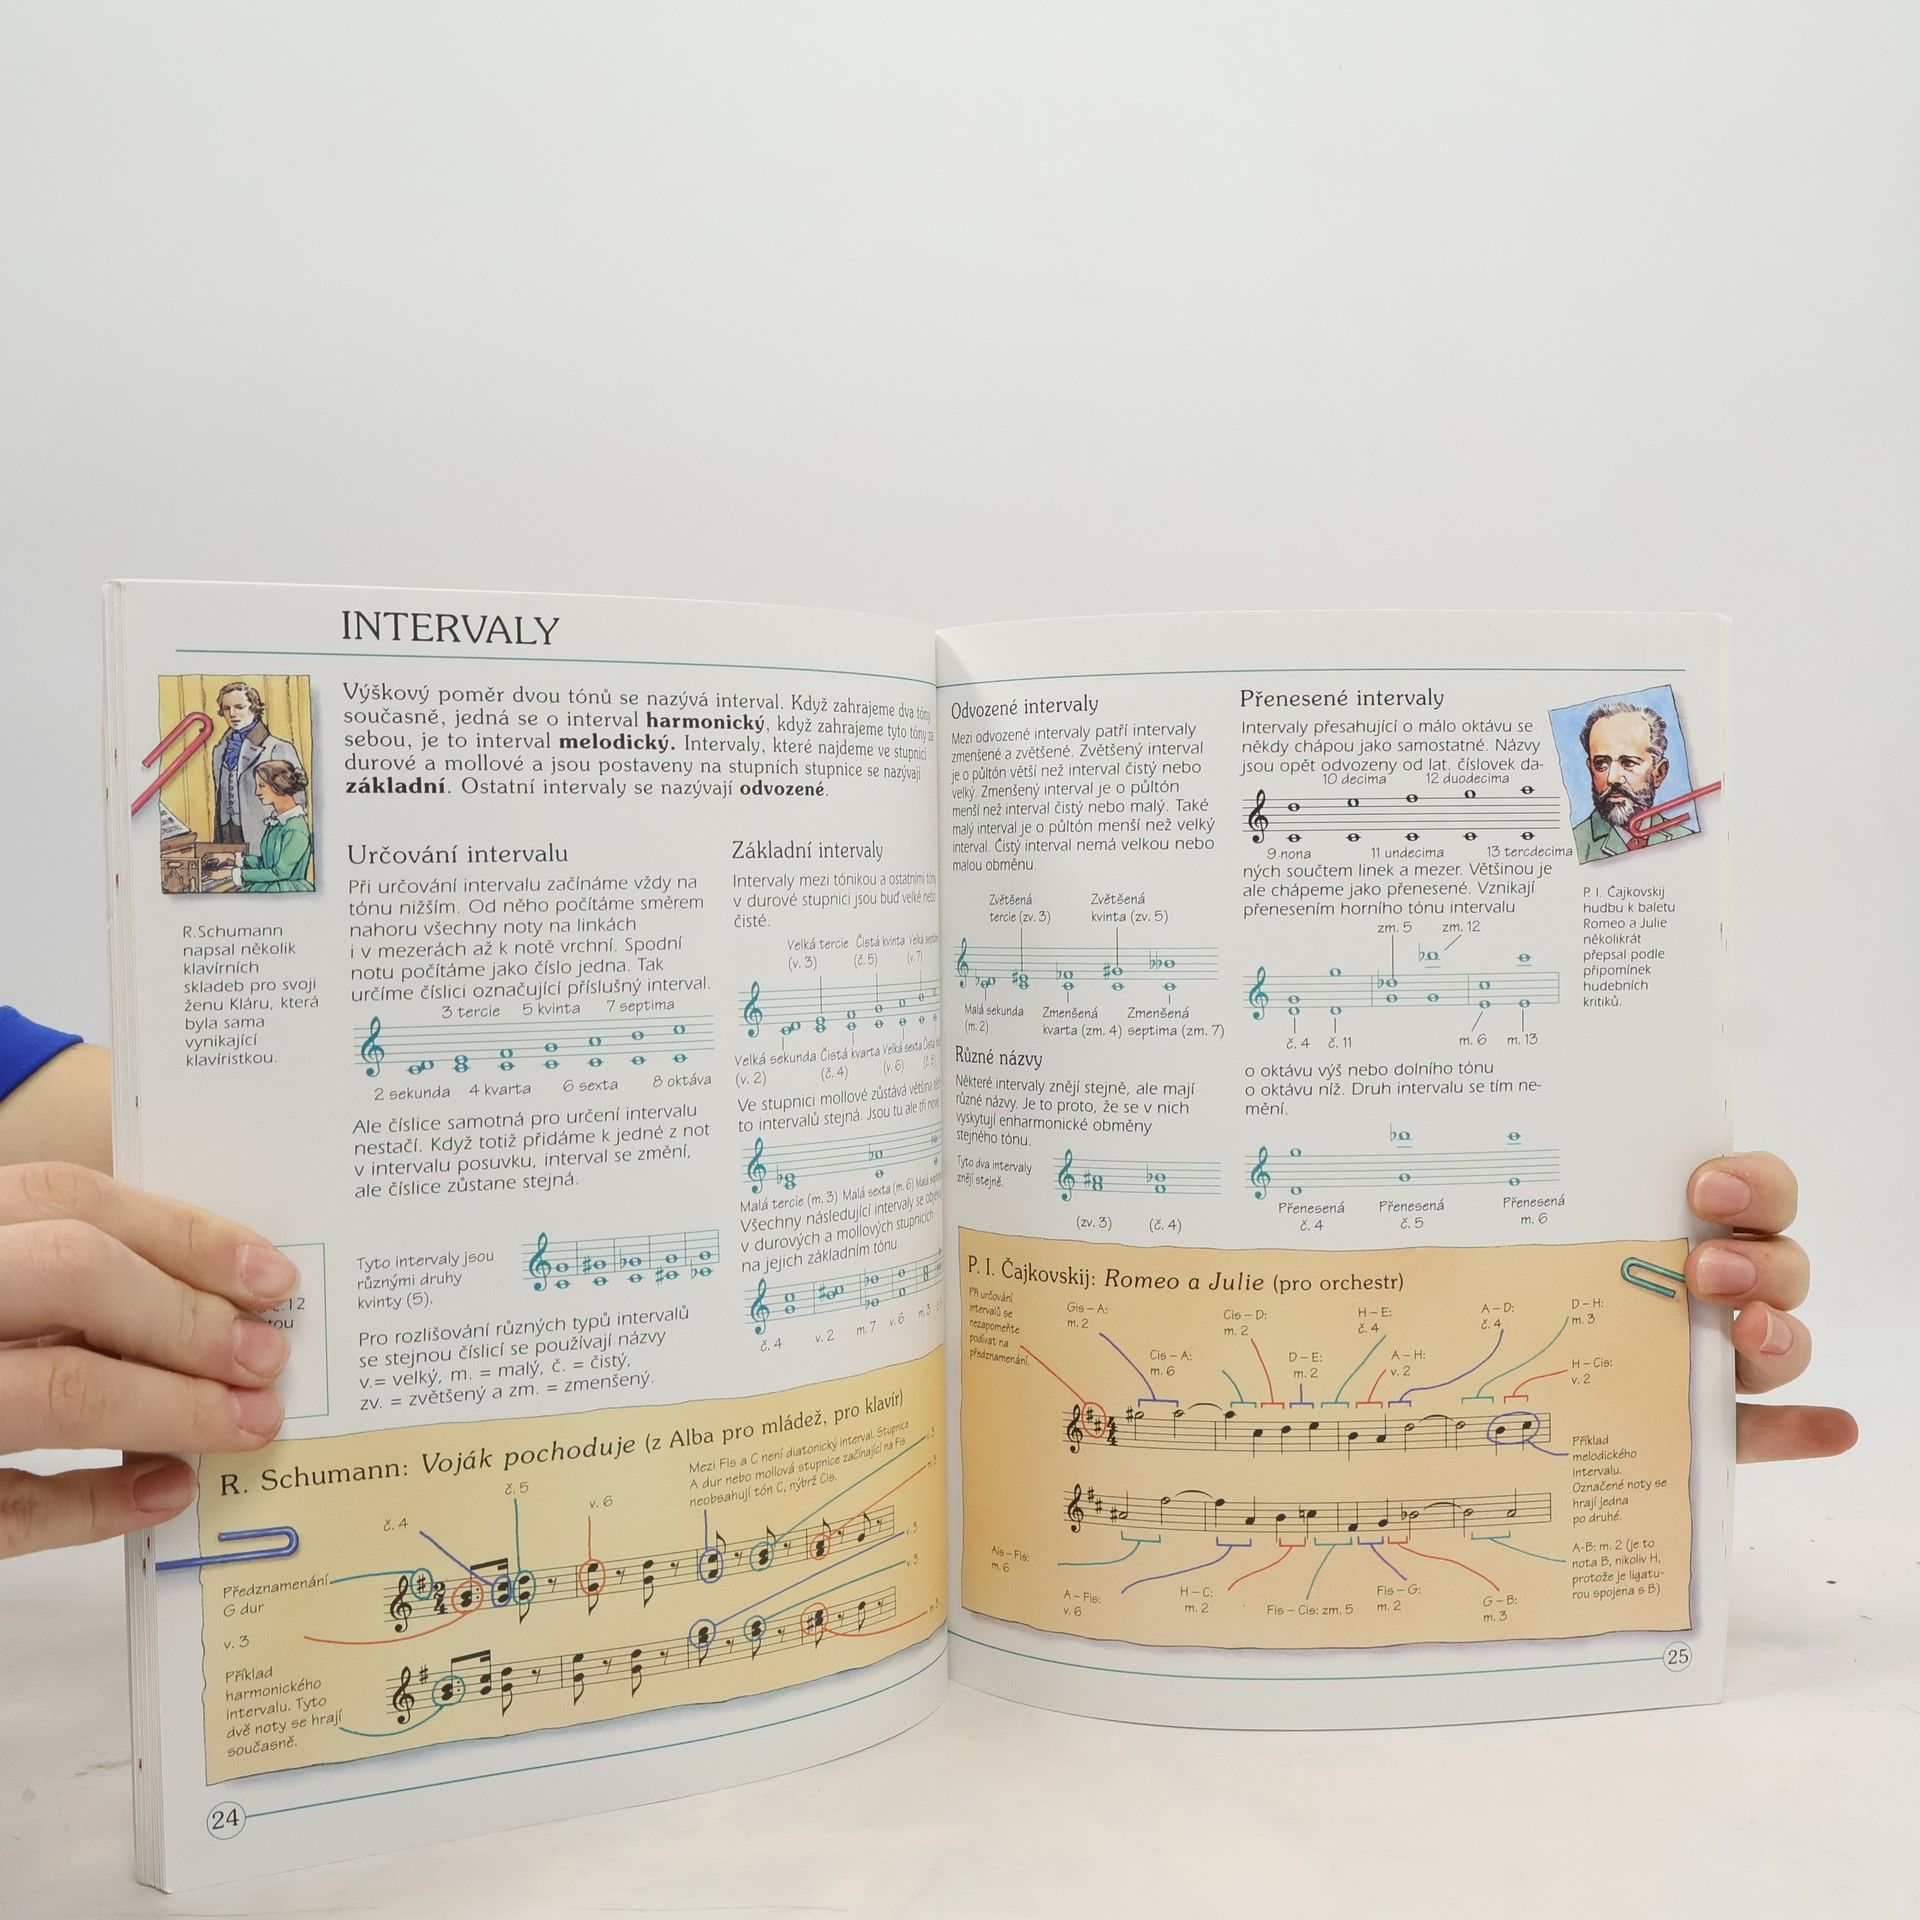 INTERVALY
Výškový poměr dvou tónů se nazývá interval. Když zahrajeme dva tóny
současně, jedná se o interval harmonický, když zahrajeme tyto tóny za
sebou, je to interval melodický. Intervaly, které najdeme ve stupnici
durové a mollové a jsou postaveny na stupních stupnice se nazývají
základní. Ostatní intervaly se nazývají odvozené.
R.Schumann
napsal několik
klavírních
skladeb pro svoji
ženu Kláru, která
byla sama
vynikající
klavíristkou.
Určování intervalu
Při určování intervalu začínáme vždy na
tónu nižším. Od něho počítáme směrem
nahoru všechny noty na linkách
i v mezerách až k notě vrchní. Spodní
notu počítáme jako číslo jedna. Tak
určíme číslici označující příslušný interval.
3 tercie 5 kvinta 7 septima
2 sekunda 4 kvarta 6 sexta 8 oktáva
Ale číslice samotná pro určení intervalu
nestačí. Když totiž přidáme k jedné z not
v intervalu posuvku, interval se změní,
ale číslice zůstane stejná.
Tyto intervaly jsou
různými druhy
kvinty (5).
Pro rozlišování různých typů intervalů
se stejnou číslicí se používají názvy
v.= velký, m. = malý, č. = čistý,
zv. = zvětšený a zm. = zmenšený.
Základní intervaly
Intervaly mezi tónikou a ostatními tóny
v durové stupnici jsou buď velké nebo
čisté.
Velká tercie Čistá kvinta Velká
(v. 3) (č. 5) (v. 7)
Velká sekunda Čistá kvarta Velká sexta
(v. 2) (č. 4) (v. 6)
Ve stupnici mollové zůstává většina
to intervalů stejná. Jsou tu ale tři nové
Malá tercie (m. 3) Malá sexta (m. 6) Malá
Všechny následující intervaly se
v durových a mollových stupnicích
na jejich základním tónu.
č. 4 v. 2 m. 7 v. 6 m. 3
č.12
R. Schumann: Voják pochoduje (z Alba pro mládež, pro klavír)
Mezi Fis a C není diatonický interval. Stupnice
A dur nebo mollová stupnice začínající na Fis
neobsahují tón C, nýbrž Cis.
č. 4
č. 5
v. 6
v. 3
m. 3
v. 3
v. 3
m. 3
2
4
Předznamenání
G dur
v. 3
Příklad
harmonického
intervalu. Tyto
dvě noty se hrají
současně.
24
Odvozené intervaly
Mezi odvozené intervaly patří intervaly
zmenšené a zvětšené. Zvětšený interval
je o půltón větší než interval čistý nebo
velký. Zmenšený interval je o půltón
menší než interval čistý nebo malý. Také
malý interval je o půltón menší než velký
interval. Čistý interval nemá velkou nebo
malou obměnu.
Zvětšená Zvětšená
tercie (zv. 3) kvinta (zv. 5)
Malá sekunda Zmenšená Zmenšená
(m. 2) kvarta (zm. 4) septima (zm. 7)
Různé názvy
Některé intervaly znějí stejně, ale mají
různé názvy. Je to proto, že se v nich
vyskytují enharmonické obměny
stejného tónu.
Tyto dva intervaly
znějí stejně.
(zv. 3) (č. 4)
Přenesené intervaly
Intervaly přesahující o málo oktávu se
někdy chápou jako samostatné. Názvy
jsou opět odvozeny od lat. číslovek da-
10 decima 12 duodecima
9 nona 11 undecima 13 tercdecima
ných součtem linek a mezer. Většinou je
ale chápeme jako přenesené. Vznikají
přenesením horního tónu intervalu
zm. 5 zm. 12
č. 4 č. 11 m. 6 m. 13
o oktávu výš nebo dolního tónu
o oktávu níž. Druh intervalu se tím ne-
mění.
Přenesená Přenesená Přenesená
č. 4 č. 5 m. 6
P. I. Čajkovskij
hudbu k baletu
Romeo a Julie
několikrát
přepsal podle
připomínek
hudebních
kritiků.
P. I. Čajkovskij: Romeo a Julie (pro orchestr)
Při určování
intervalů se
nezapomeňte
podívat na
předznamenání.
Gis – A:
m. 2
Cis – A:
m. 6
Cis – D:
m. 2
D – E:
m. 2
H – E:
č. 4
A – H:
v. 2
A – D:
č. 4
D – H:
m. 3
H – Cis:
v. 2
4
4
Příklad
melodického
intervalu.
Označené noty se
hrají jedna
po druhé.
A-B: m. 2 (je to
nota B, nikoliv H,
protože je ligatu-
rou spojena s B)
Ais – Fis:
m. 6
A – Fis:
v. 6
H – C:
m. 2
Fis – Cis: zm. 5
Fis – G:
m. 2
G – B:
m. 3
25